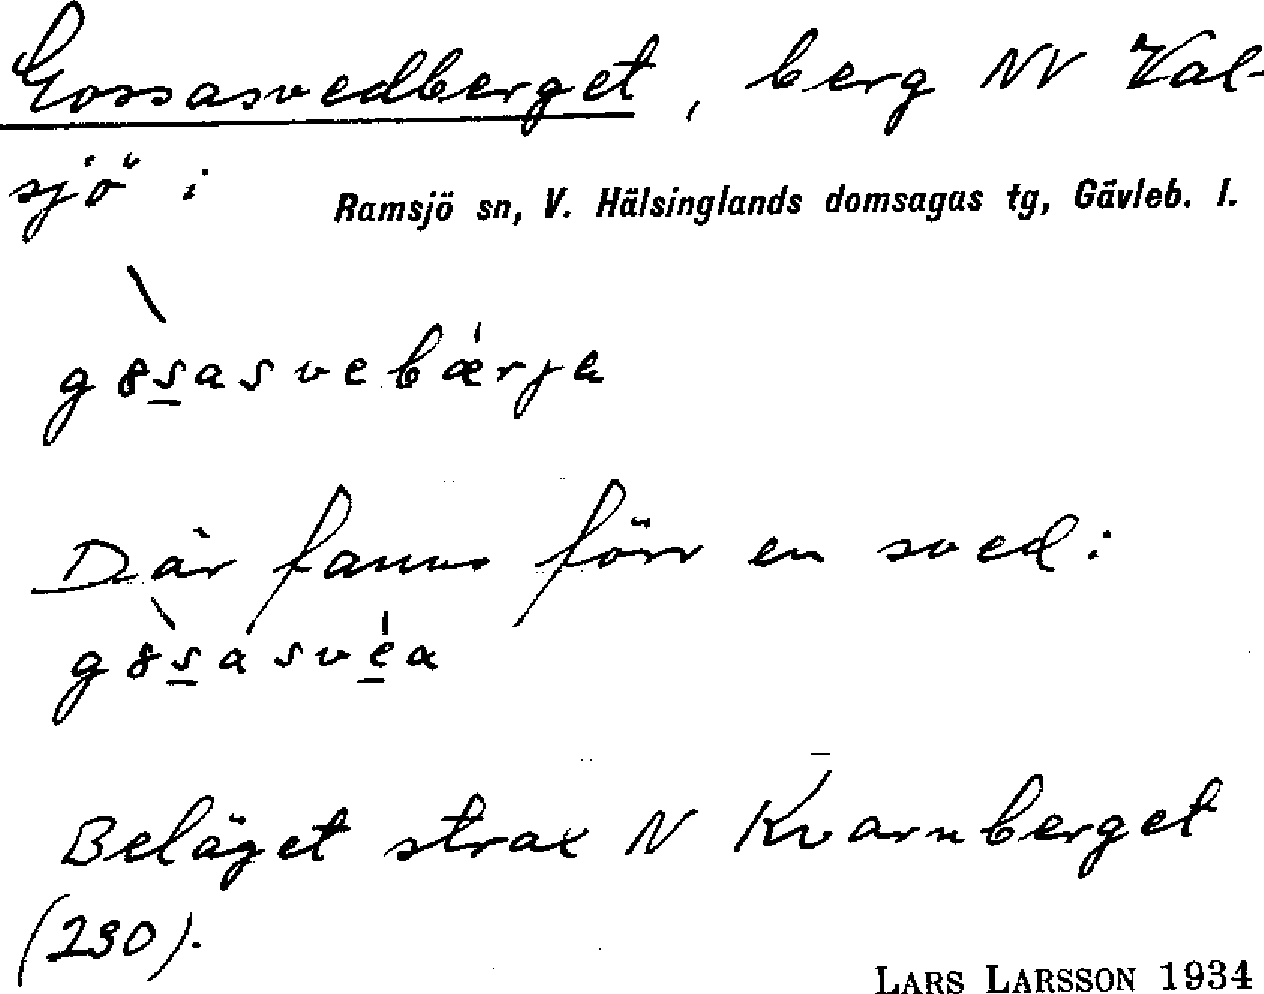 Gossasvedberget, berg NV Val-
sjö i Ramsjö sn, V. Hälsinglands domsagas tg, Gävleb. l.
gȣsasvebærjɐ
Där fanns förr en sved:
gȣsasvea
Beläget strax N Kvarnberget
(230).
LARS LARSSON 1934